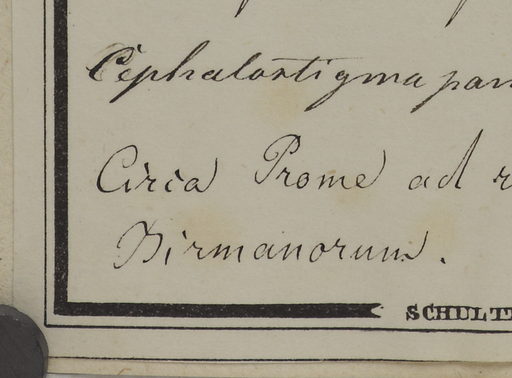 Cephalostigma pan
Circa Prome ad r
Birmanorum.
SCHULT